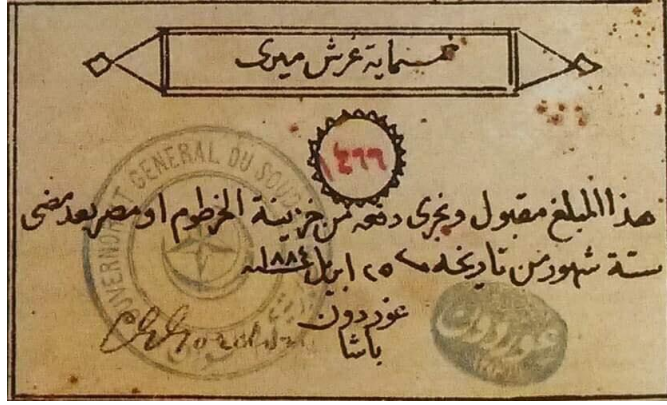 خمسماية غرش ميرى
١٤٦٦
هذا المبلغ مقبول ويجرى دفعه من خزينة الخرطوم او مصر بعد مضى
ستة شهور من تاريخه ٢٥ ابريل ١٨٨٤ سنه
غوردون
باشا
GOUVERNORAT GENERAL DU SOUDAN
C G Gordon
غوردون